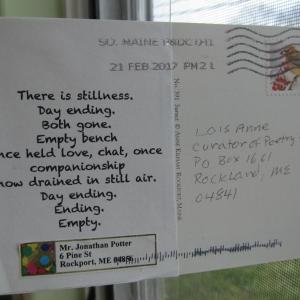 SO. MAINE P&DC 041
21 FEB 2017 PM 2 L
There is stillness.
Day ending.
Both gone.
Empty bench
once held love, chat, once
companionship
now drained in still air.
Day ending.
Ending.
Empty.
Mr. Jonathan Potter
6 Pine St
Rockport, ME 04856
Lois Anne
Curator of Poetry
PO Box 1661
Rockland, ME
04841